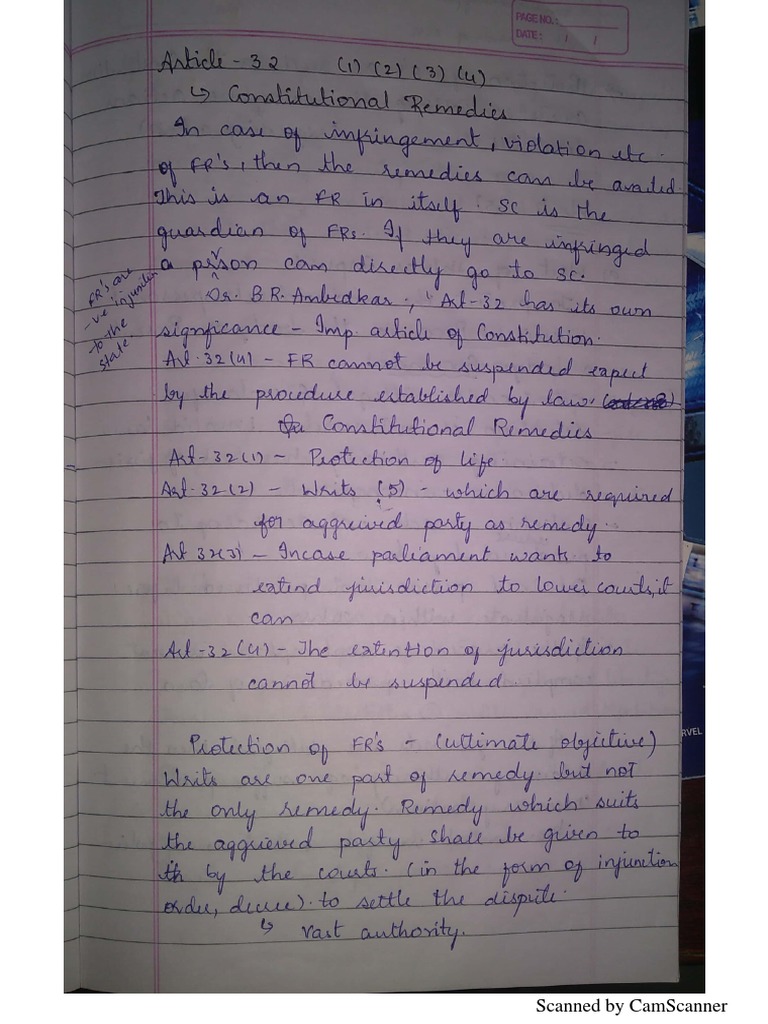 PAGE NO.:
DATE: / /
Article - 32 (1) (2) (3) (4)
↳ Constitutional Remedies
In case of infringement, violation etc.
of FR's, then the remedies can be availed.
This is an FR in itself. SC is the
guardian of FRs. If they are infringed
a person can directly go to SC.
FR's are
-ve injunction
to the
state
Dr. B.R. Ambedkar, "Art-32 has its own
signficance - Imp. article of Constitution.
Art. 32(4) - FR cannot be suspended expect
by the procedure established by law.
Constitutional Remedies
Art-32(1) - Protection of life.
Art-32(2) - Writs (5) - which are required
for aggreived party as remedy.
Art 32(3) - Incase parliament wants to
extend jurisdiction to lower courts, it
can
Art-32(4) - The extention of jurisdiction
cannot be suspended.
Protection of FR's - (ultimate objective)
Writs are one part of remedy but not
the only remedy. Remedy which suits
the aggrieved party shall be given to
it by the courts. (in the form of injunction
order, decree). to settle the dispute.
↳ Vast authority.
RVEL
Scanned by CamScanner